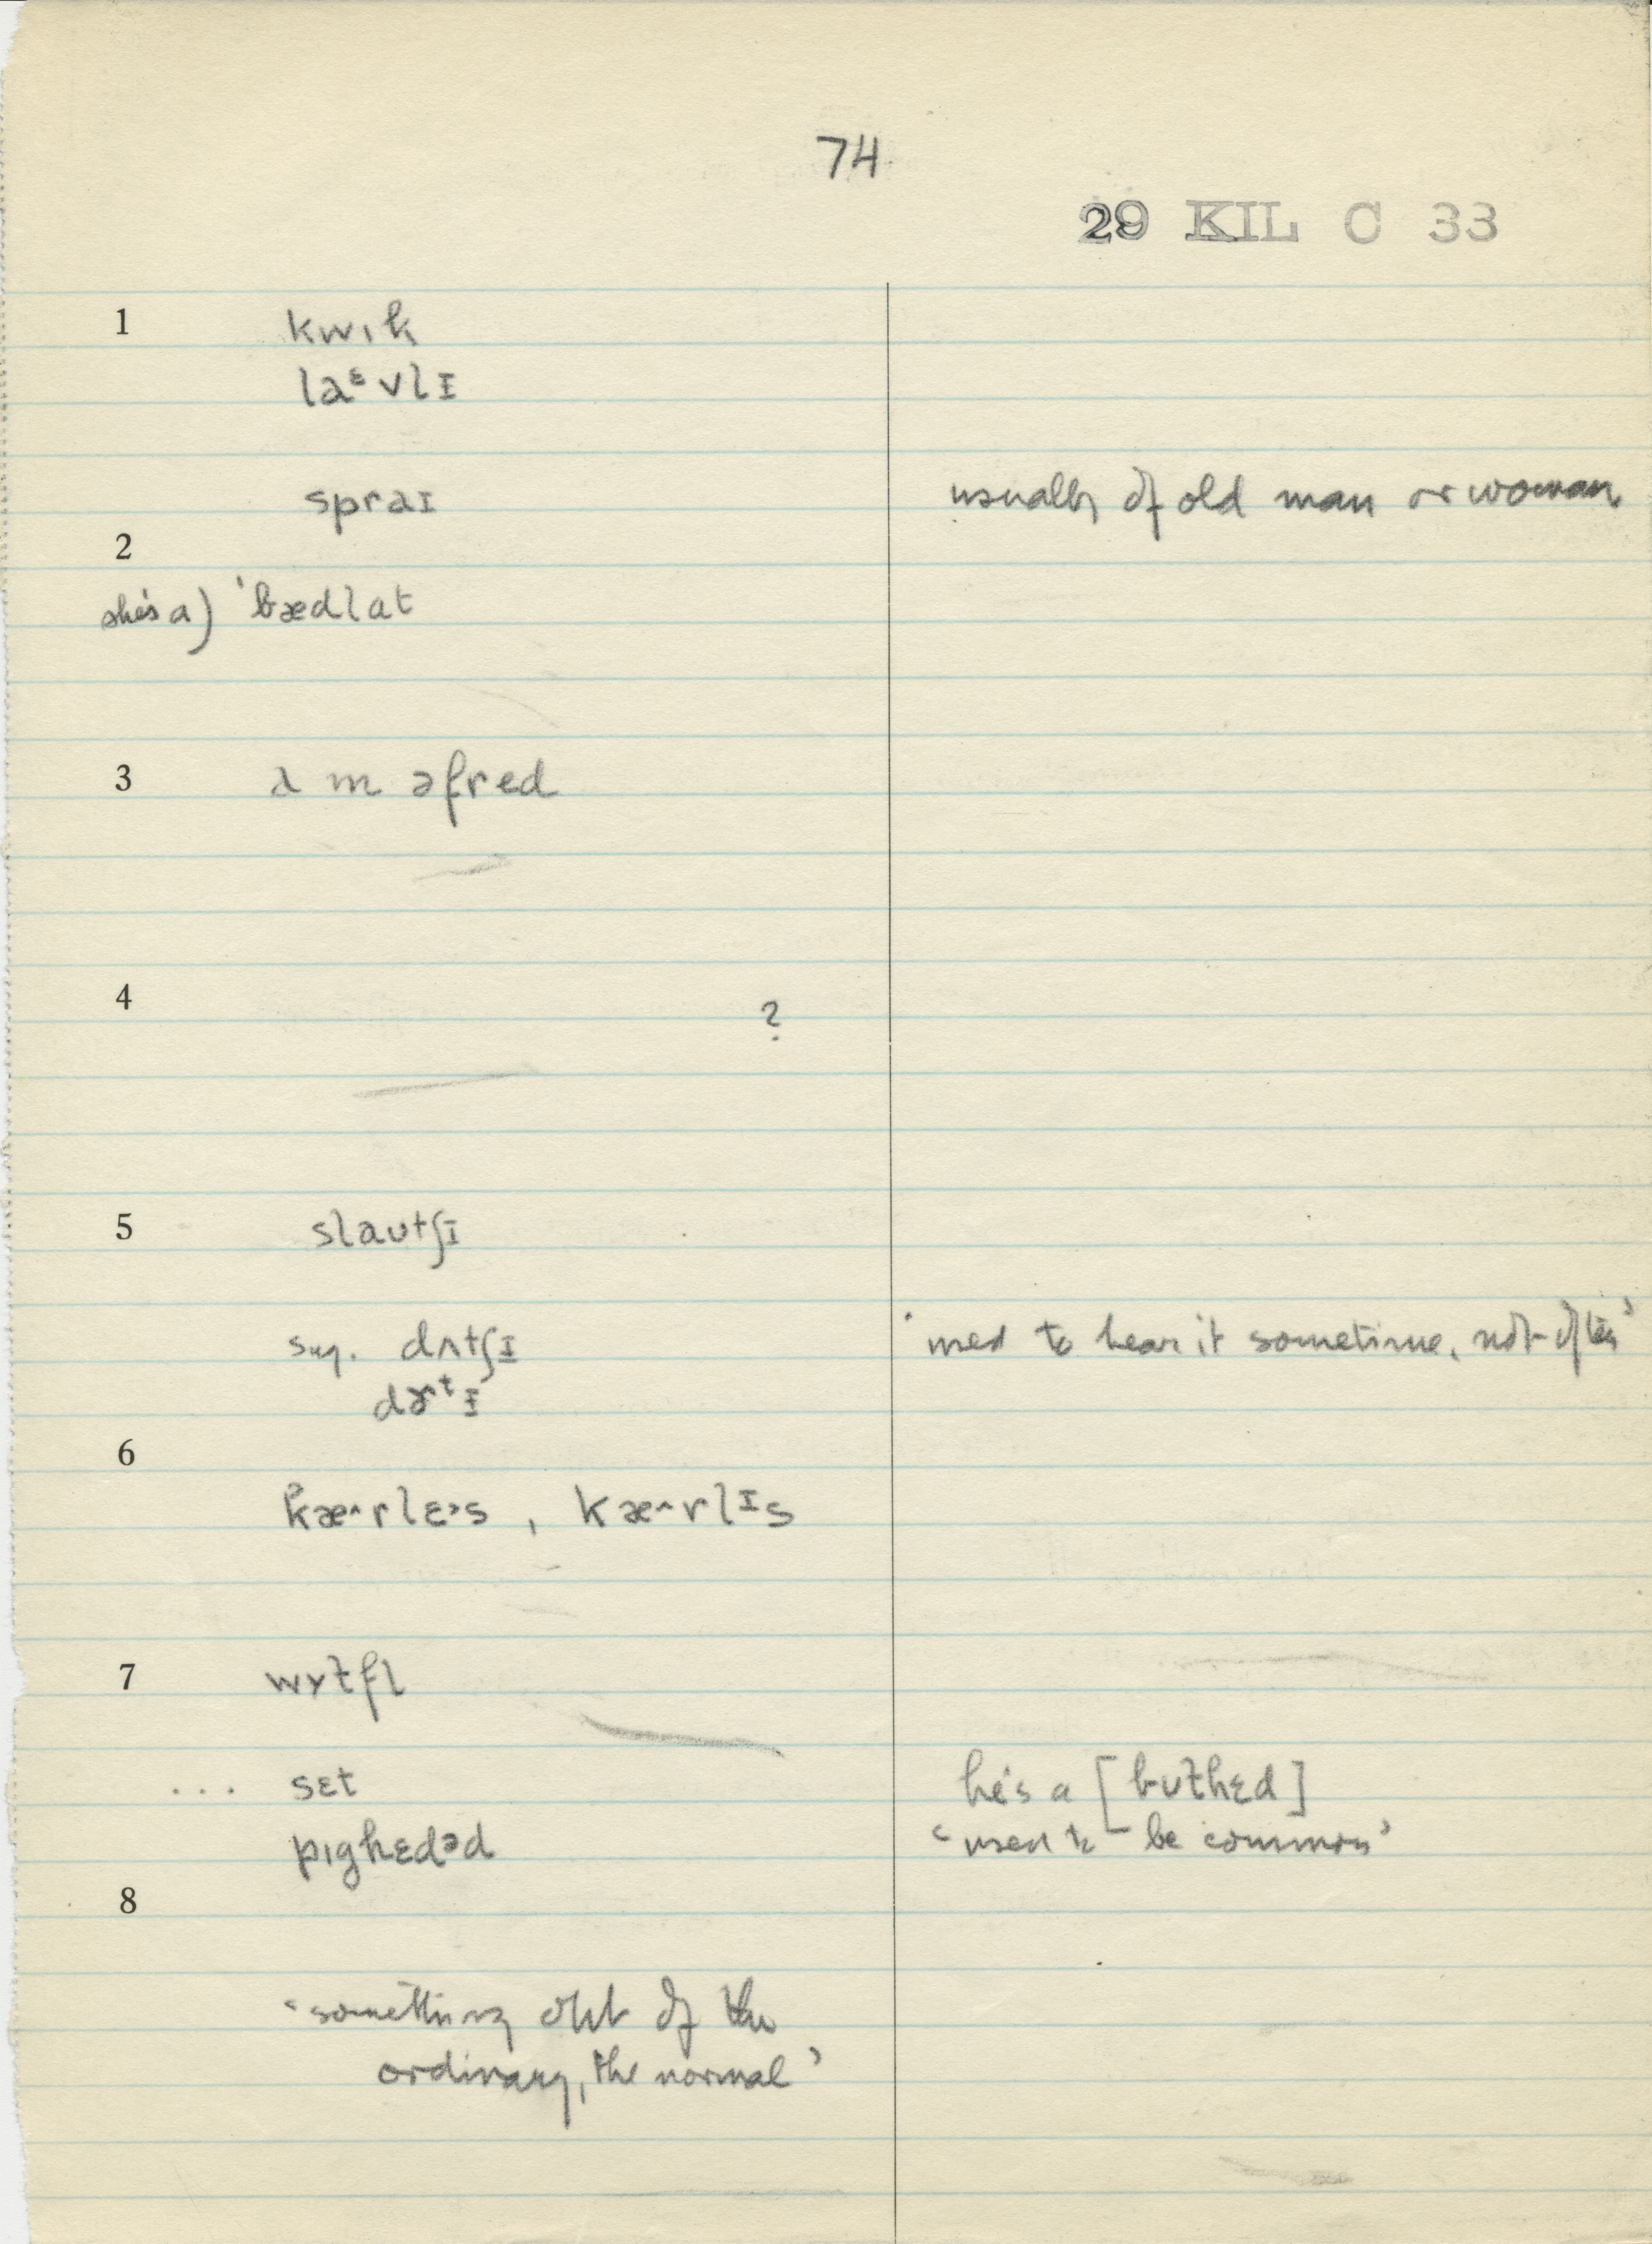 74
29 KIL C 33
1 kwık
laᵋvlɪ
spraɪ usually of old man or woman
2
she's a) ˈbædlat
3 ʌ m əfred
4 ?
5 slaʊtʃɪ
sug. dʌtʃɪ 'used to hear it sometime, not often'
dɤʳtɪ
6
kæ˄rlɛ˒s , kæ˄rlᶦs
7 wʏɫfl
... sɛt he's a [bʊɫhɛd]
pıghɛdəd 'used to be common'
8
'something out of the
ordinary, the normal'